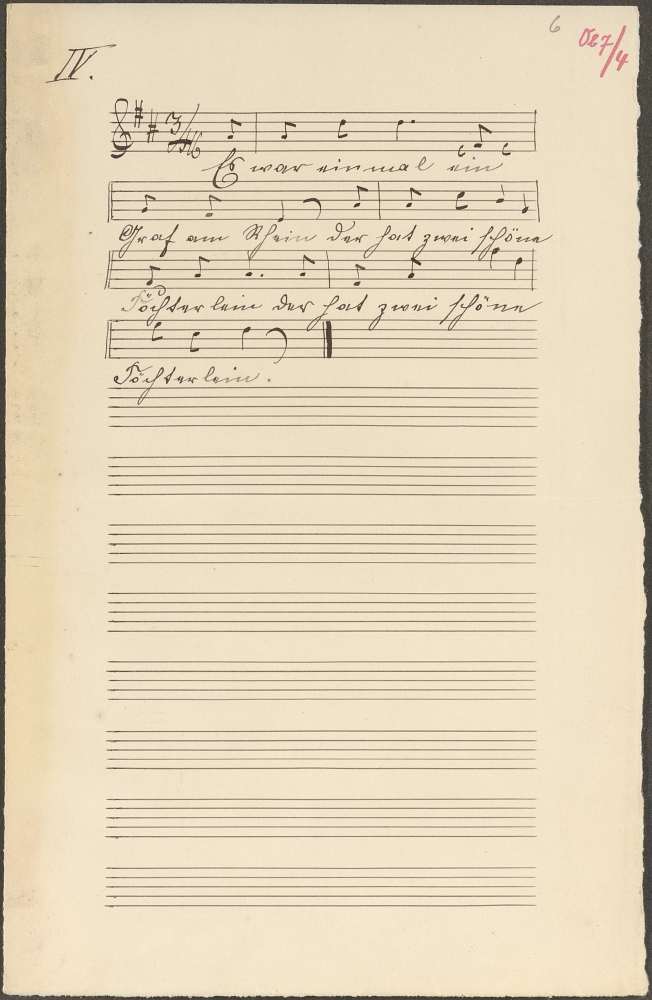 6
IV.
Es war einmal ein
Graf am Rhein der hat zwei schöne
Töchterlein der hat zwei schöne
Töchterlein.